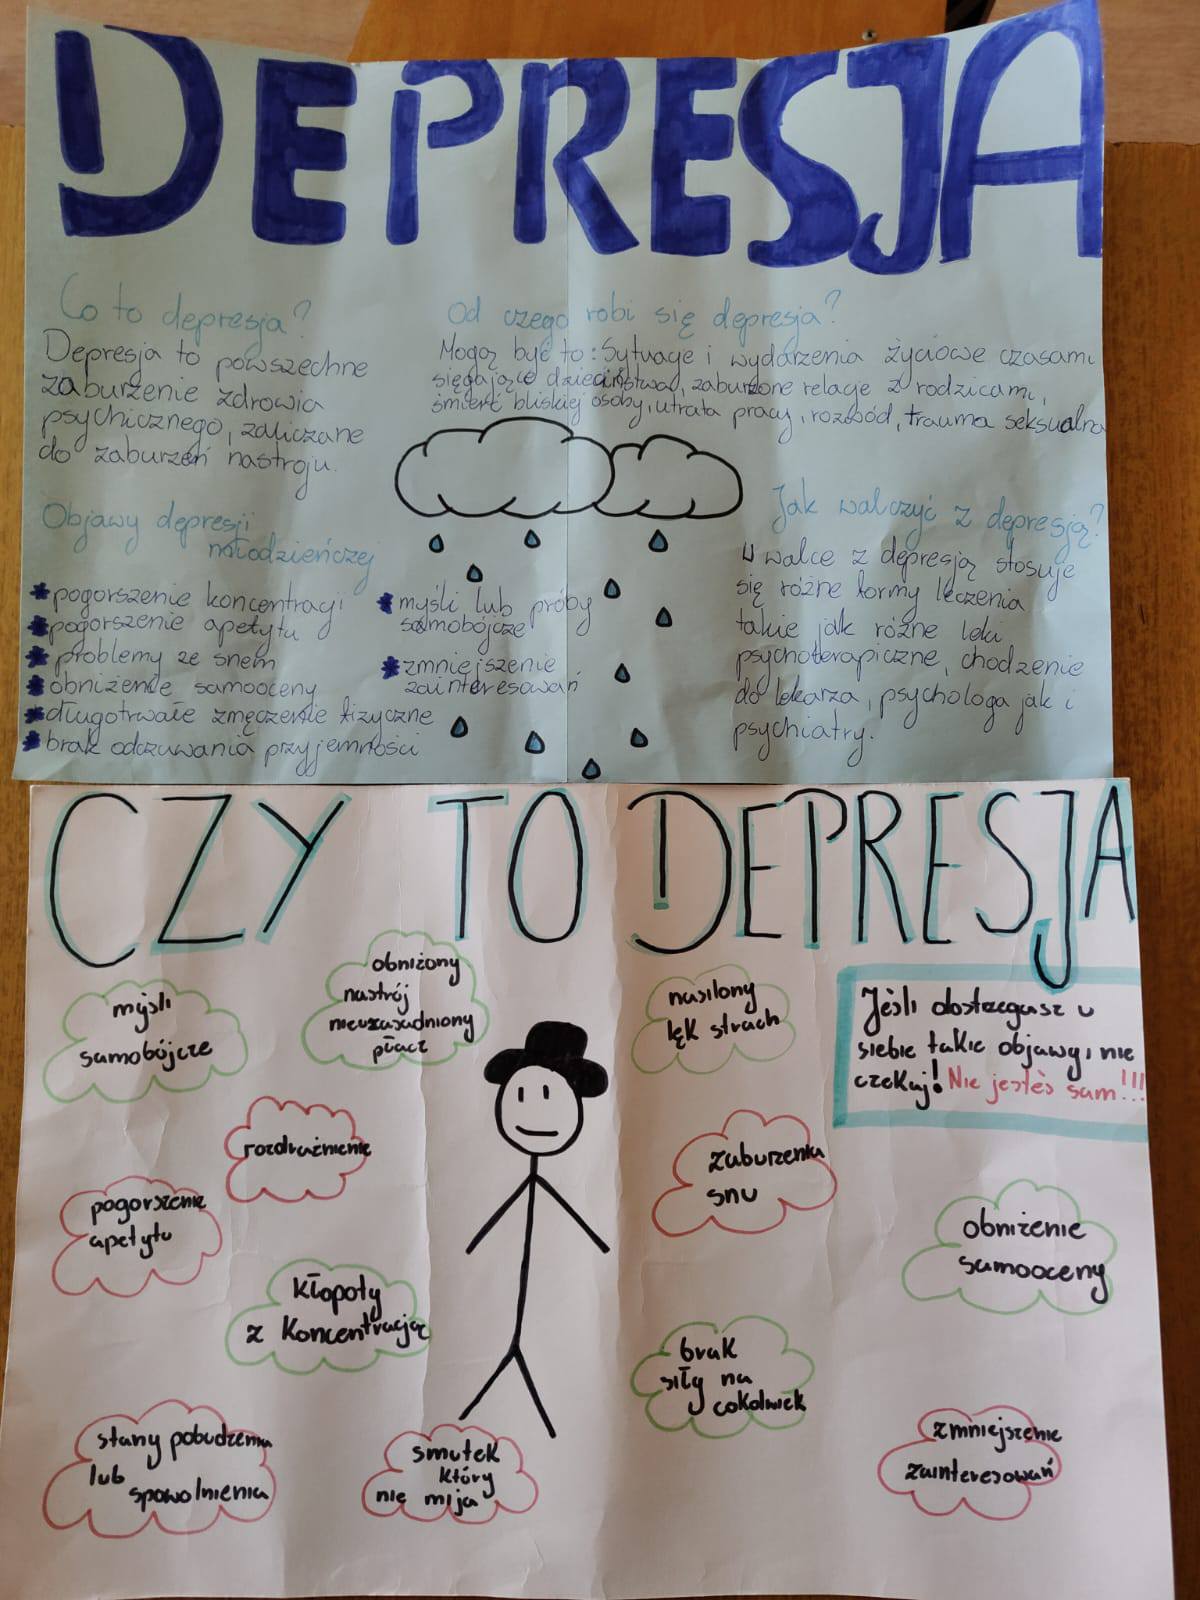 DEPRESJA
Co to depresja?
Depresja to powszechne
zaburzenie zdrowia
psychicznego, zaliczane
do zaburzeń nastroju.
Od czego robi się depresja?
Mogą być to: Sytuacje i wydarzenia życiowe czasami
sięgające dzieciństwa, zaburzone relacje z rodzicami,
śmierć bliskiej osoby, utrata pracy, rozwód, trauma seksualna
Objawy depresji
młodzieńczej
*pogorszenie koncentracji
*pogorszenie apetytu
*problemy ze snem
*obniżenie samooceny
*długotrwałe zmęczenie fizyczne
*brak odczuwania przyjemności
*myśli lub próby
samobójcze
*zmniejszenie
zainteresowań
Jak walczyć z depresją?
W walce z depresją stosuje
się różne formy leczenia
takie jak różne leki
psychoterapiczne, chodzenie
do lekarza, psychologa jak i
psychiatry.
CZY TO DEPRESJA
myśli
samobójcze
obniżony
nastrój
nieuzasadniony
płacz
nasilony
lęk strach
Jeśli dostrzegasz u
siebie takie objawy, nie
czekaj! Nie jesteś sam!!!
rozdrażnienie
pogorszenie
apetytu
zaburzenia
snu
obniżenie
samooceny
kłopoty
z koncentracją
brak
siły na
cokolwiek
stany pobudzenia
lub
spowolnienia
smutek
który
nie mija
zmniejszenie
zainteresowań